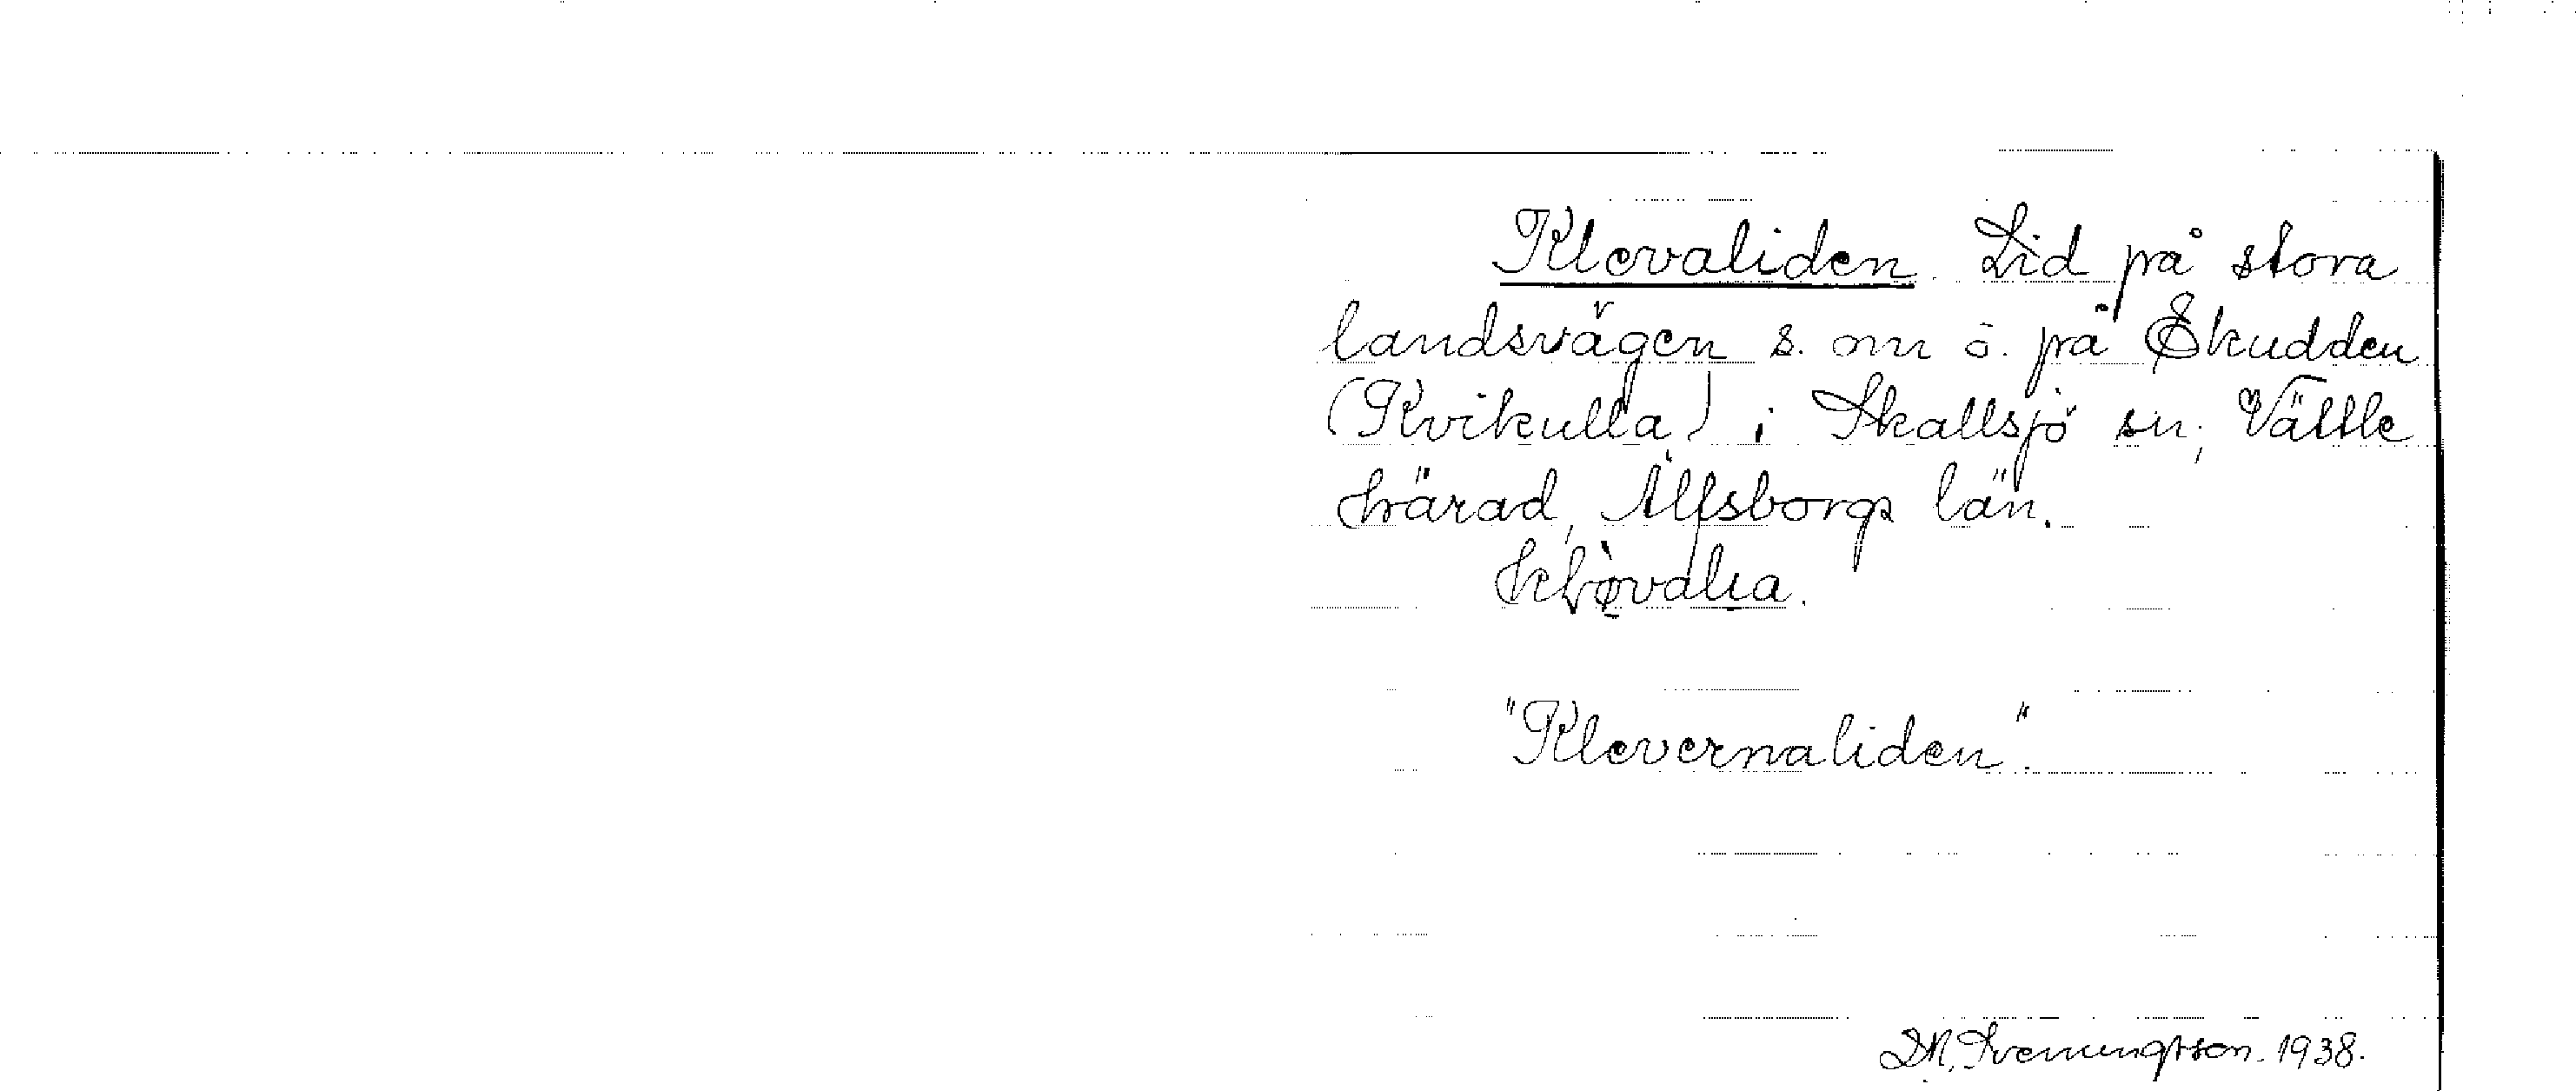 Klevaliden. Lid på stora
landsvägen s. om ö. på Skudden
(Kvikulla) i Skallsjö sn, Vättle
härad, Älfsborgs län.
"Klevernaliden".
1938.